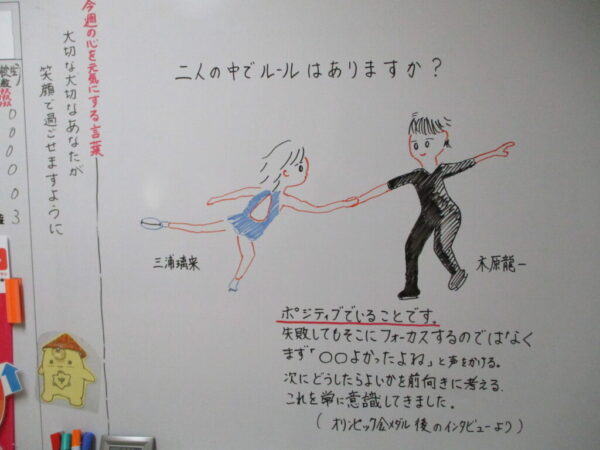 今週の心を元気にする言葉
大切な大切なあなたが
笑顔で過ごせますように
二人の中でルールはありますか？
三浦璃来
木原龍一
ポジティブでいることです。
失敗してもそこにフォーカスするのではなく
まず「○○よかったよね」と声をかける。
次にどうしたらよいかを前向きに考える。
これを常に意識してきました。
（オリンピック金メダル後のインタビューより）
0
0
0
0
0
3